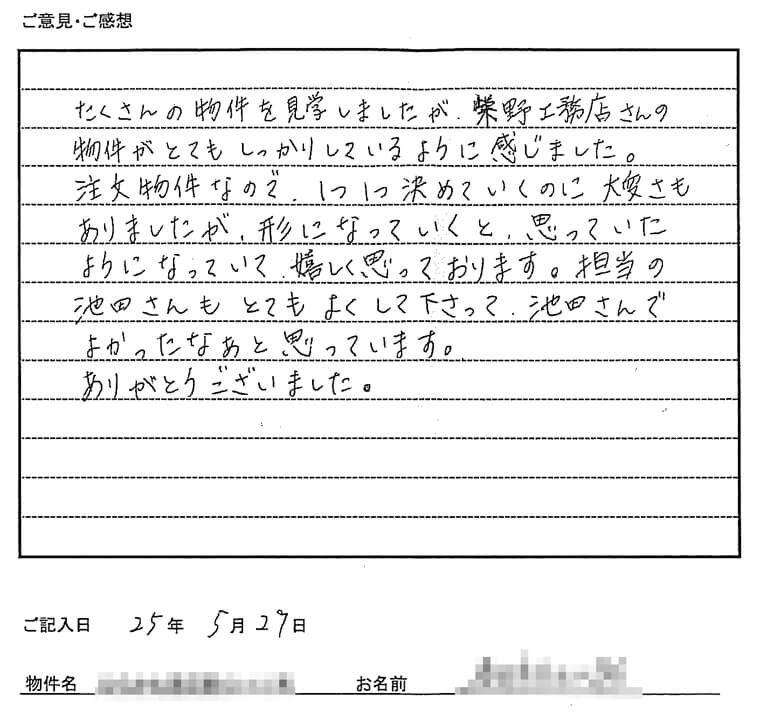 ご意見・ご感想
たくさんの物件を見学しましたが、柴野工務店さんの
物件がとてもしっかりしているように感じました。
注文物件なので、1つ1つ決めていくのに大変さも
ありましたが、形になっていくと、思っていた
ようになっていて、嬉しく思っております。担当の
池田さんもとてもよくして下さって、池田さんで
よかったなぁと思っています。
ありがとうございました。
ご記入日 25年 5月 29日
物件名 お名前